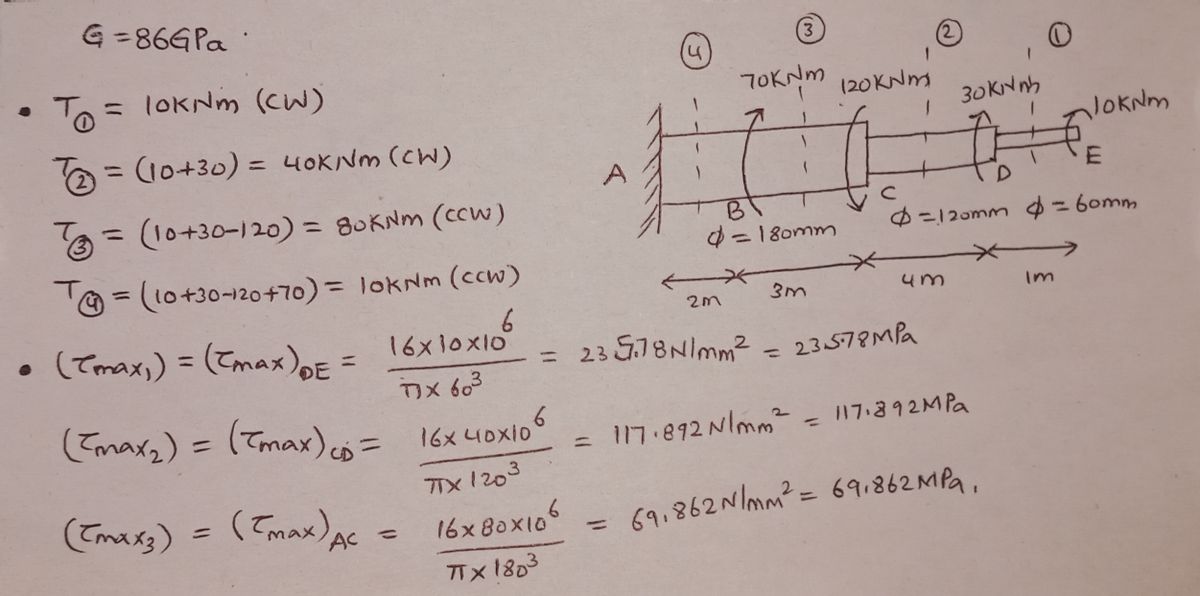 G = 86GPa
• T① = 10KNm (CW)
T② = (10+30) = 40KNm (CW)
T③ = (10+30-120) = 80KNm (CCW)
T④ = (10+30-120+70) = 10KNm (CCW)
④ ③ ② ①
70KNm 120KNm 30KNm 10KNm
A B C D E
φ = 180mm φ = 120mm φ = 60mm
2m 3m 4m 1m
• (τmax₁) = (τmax)DE = 16×10×10⁶ / π×60³ = 235.78N/mm² = 235.78MPa
(τmax₂) = (τmax)CD = 16×40×10⁶ / π×120³ = 117.892N/mm² = 117.892MPa
(τmax₃) = (τmax)AC = 16×80×10⁶ / π×180³ = 69.862N/mm² = 69.862MPa.